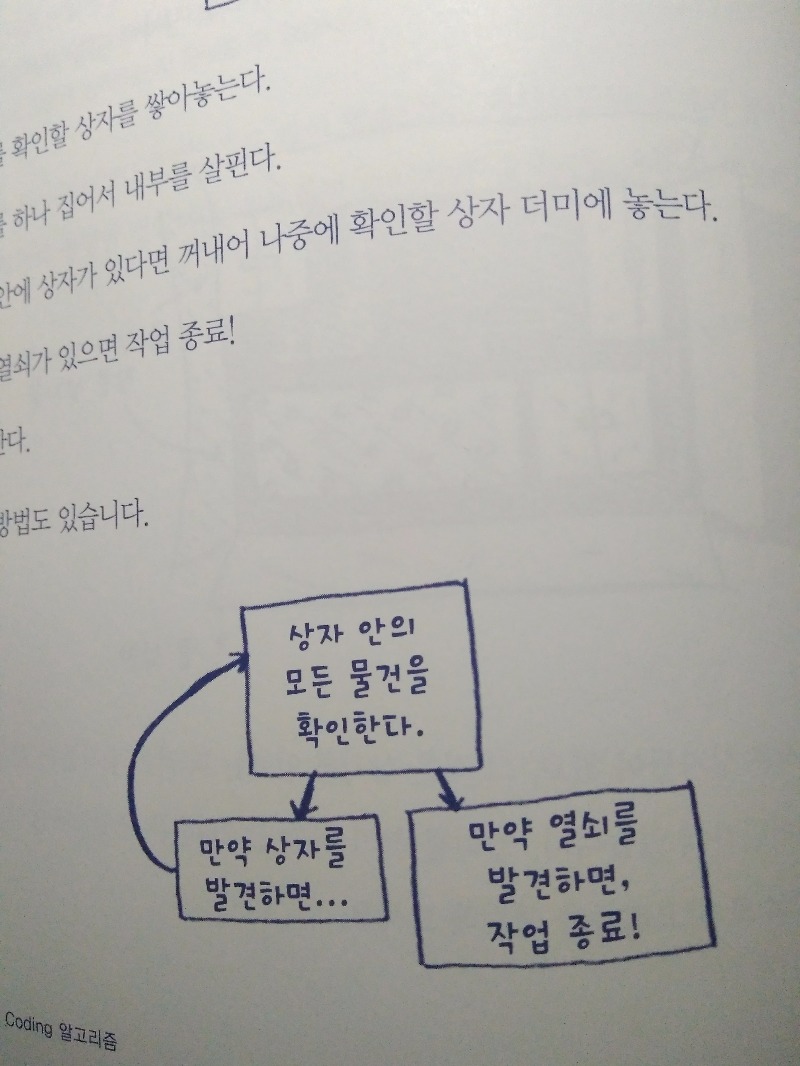 확인할 상자를 쌓아놓는다.
하나 집어서 내부를 살핀다.
안에 상자가 있다면 꺼내어 나중에 확인할 상자 더미에 놓는다.
열쇠가 있으면 작업 종료!
방법도 있습니다.
상자 안의
모든 물건을
확인한다.
만약 상자를
발견하면...
만약 열쇠를
발견하면,
작업 종료!
Coding 알고리즘